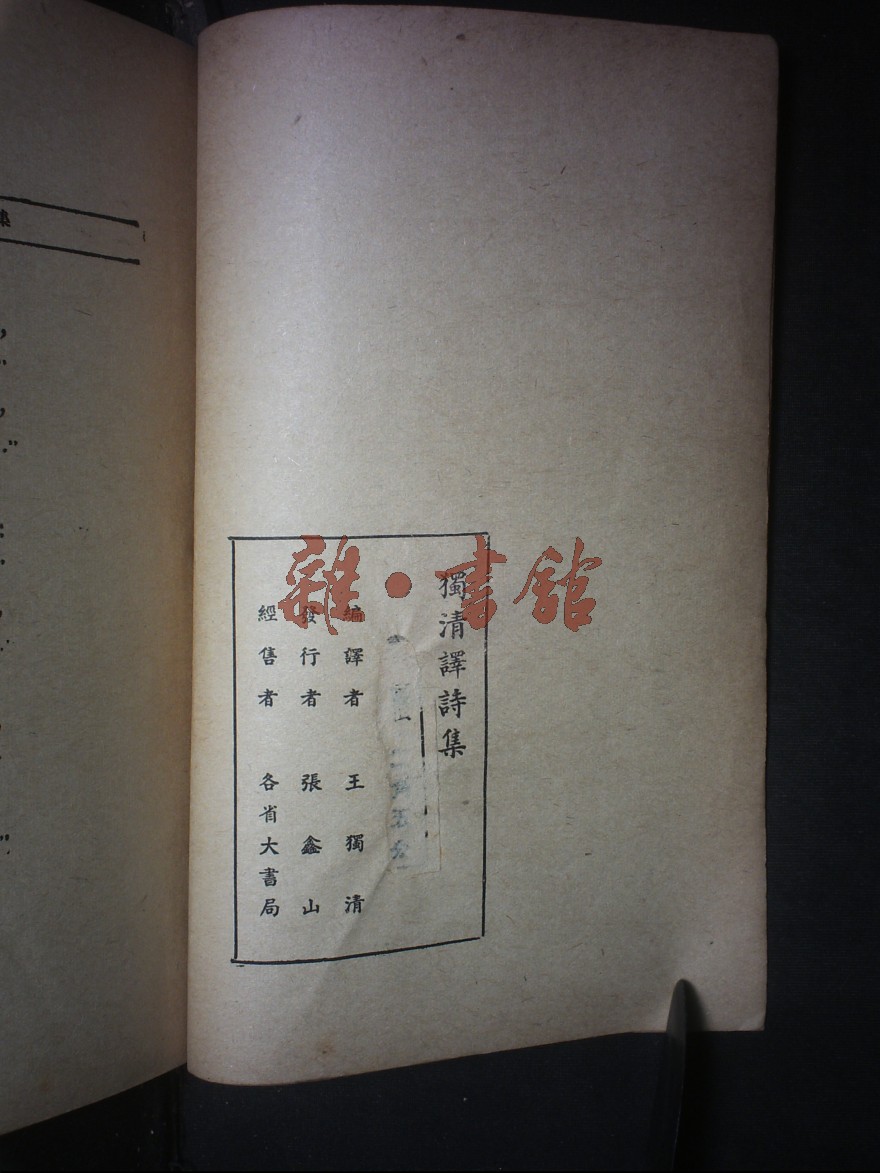 獨清譯詩集
編譯者 王獨清
發行者 張鑫山
經售者 各省大書局
雜·書館
集